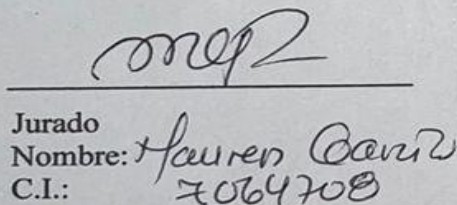 Jurado
Nombre: Mauren
C.I.: 7064708